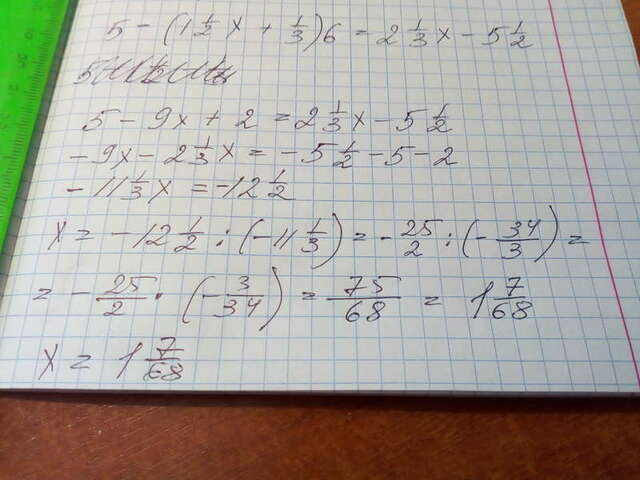 5 - (1 1/2 x + 1/3)6 = 2 1/3 x - 5 1/2
5 - 9x + 2 = 2 1/3 x - 5 1/2
-9x - 2 1/3 x = -5 1/2 - 5 - 2
-11 1/3 x = -12 1/2
x = -12 1/2 : (-11 1/3) = -25/2 : (-34/3) =
= -25/2 · (-3/34) = 75/68 = 1 7/68
x = 1 7/68